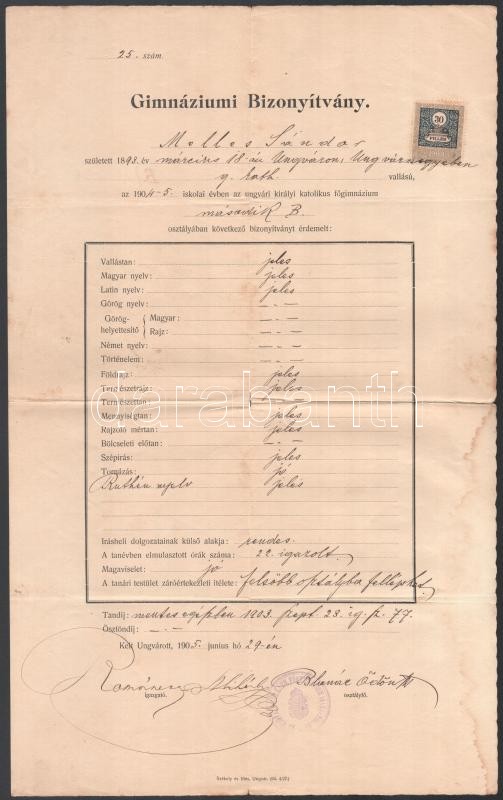 25. szám.
Gimnáziumi Bizonyítvány.
30
FILLÉR
Melles Sándor
született 1893. év március 18-án Ungváron, Ung vármegyében
g. kath. vallású,
az 1904-5. iskolai évben az ungvári királyi katolikus főgimnázium
második B.
osztályában következő bizonyítványt érdemelt:
Vallástan: jeles
Magyar nyelv: jeles
Latin nyelv: jeles
Görög nyelv: — . —
Görög-helyettesítő { Magyar: — . —
Rajz: — . —
Német nyelv: — . —
Történelem: — . —
Földrajz: jeles
Természetrajz: jeles
Természettan: — . —
Mennyiségtan: jeles
Rajzoló mértan: jeles
Bölcseleti előtan: — . —
Szépírás: jeles
Tornázás: jó
Ruthén nyelv jeles
darabanth
Írásbeli dolgozatainak külső alakja: rendes.
A tanévben elmulasztott órák száma: 22. igazolt.
Magaviselet: jó
A tanári testület záróértekezleti ítélete: felsőbb osztályba felléphet.
Tandíj: mentes egészben 1903. szept. 23. ig. sz. 77.
Ösztöndíj: — . —
Kelt Ungvárott, 1905. junius hó 29-én
Mihály
igazgató.
Ödön
osztályfő.
Székely és Illés, Ungvár.